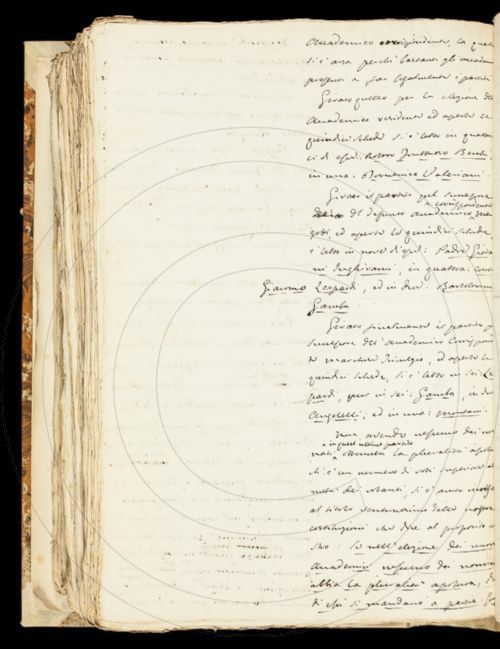 Accademico corrispondente, la qual
si è ara perchè bastanti gli accadem
presenti a far legalmente i partiti
Girato quello per la elezione del
Accademico residente ed aperte le
quindici schede si è letto in quattor
ci di esse: Fruttuoso Becchi,
in una: Domenico Valeriani.
Girato il partito pel successore
del defunto Accademico
corrispondente
ed aperte le quindici schede
è letto in nove di esse: Padre Giova
ni Inghirami, in quattro: Conte
Giacomo Leopardi, ed in due: Bartolommeo
Gamba
Girato finalmente il partito p
successore dell'Accademico Corrispon
te Marchese Trivulzio, ed aperte le
quindici schede, si è letto in sei: Leo
pardi, pure in sei: Gamba, in due
Angelelli, ed in una:
Non avendo nessuno dei no
in quest'ultimo partito
minati ottenuta la pluralità assolu
di voti superiore a
metà dei votanti, si è avuto ricorso
al titolo ventunesimo delle nostre
costituzioni che dice al proposito
sto: Se nell'elezione dei nuovi
Accademici nessuno dei nomin
abbia la pluralità assoluta,
di chi si mandano a partito